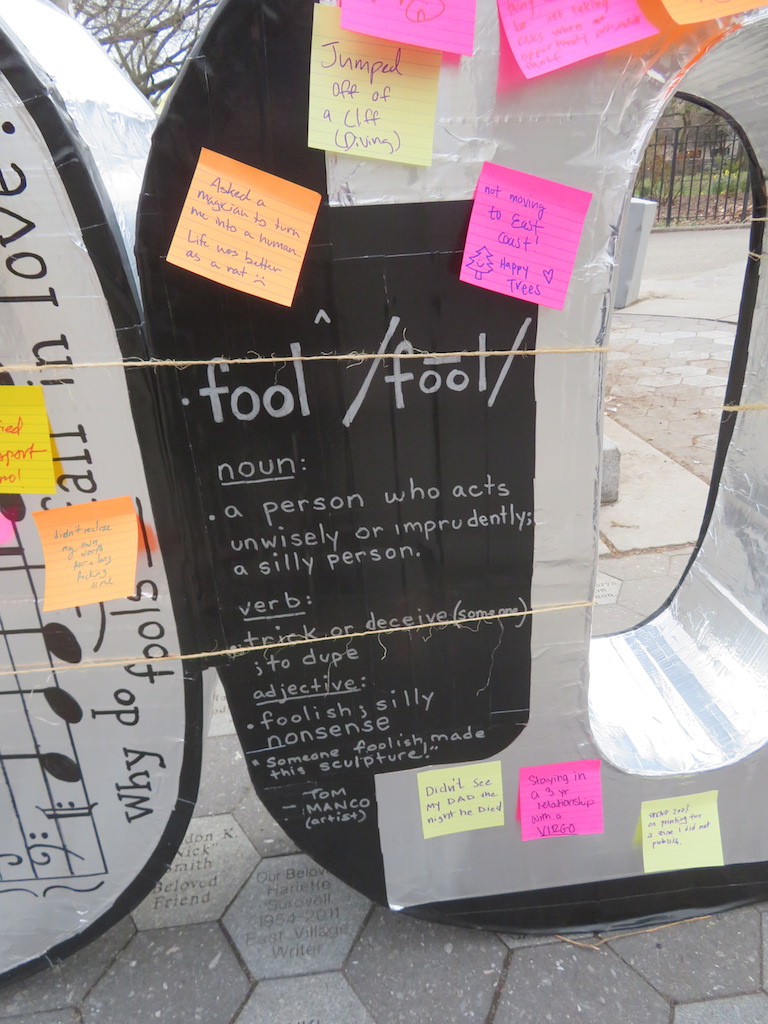 Jumped
off of
a Cliff
(Diving)
Asked a
magician to turn
me into a human.
Life was better
as a rat
not moving
to East
Coast!
Happy
Trees
• fool /fōōl/
noun:
• a person who acts
unwisely or imprudently;
a silly person.
verb:
trick or deceive (someone)
; to dupe
adjective:
• foolish; silly
nonsense
"someone foolish made
this sculpture!"
— TOM
MANCO
(artist)
didn't realize
my own
worth
for a long
time
Why do fools fall in love.
Didn't See
MY DAD the
night he Died
Staying in
a 3 yr
relationship
with a
VIRGO
on printing for
a zine I did not
publish.
on K.
"Nick"
Smith
Beloved
Friend
Our Belov
Harlette
Surovell
1954-2011
East Village
Writer